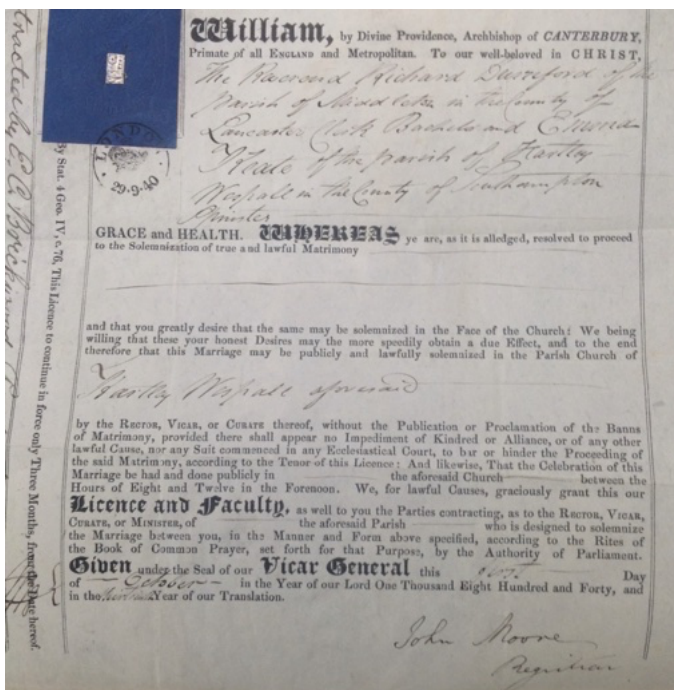 William, by Divine Providence, Archbishop of CANTERBURY,
Primate of all ENGLAND and Metropolitan. To our well-beloved in CHRIST,
The Reverend Richard Durnford of the
parish of Middleton in the County of
Lancaster Clerk Bachelor and Emma
Keate of the parish of Hartley
Wespall in the County of Southampton
Spinster
GRACE and HEALTH. WHEREAS ye are, as it is alledged, resolved to proceed
to the Solemnization of true and lawful Matrimony
and that you greatly desire that the same may be solemnized in the Face of the Church: We being
willing that these your honest Desires may the more speedily obtain a due Effect, and to the end
therefore that this Marriage may be publicly and lawfully solemnized in the Parish Church of
Hartley Wespall aforesaid
by the RECTOR, VICAR, or CURATE thereof, without the Publication or Proclamation of the Banns
of Matrimony, provided there shall appear no Impediment of Kindred or Alliance, or of any other
lawful Cause, nor any Suit commenced in any Ecclesiastical Court, to bar or hinder the Proceeding of
the said Matrimony, according to the Tenor of this Licence: And likewise, That the Celebration of this
Marriage be had and done publicly in the aforesaid Church between the
Hours of Eight and Twelve in the Forenoon. We, for lawful Causes, graciously grant this our
Licence and Faculty, as well to you the Parties contracting, as to the RECTOR, VICAR,
CURATE, or MINISTER, of the aforesaid Parish who is designed to solemnize
the Marriage between you, in the Manner and Form above specified, according to the Rites of
the Book of Common Prayer, set forth for that Purpose, by the Authority of Parliament.
Given under the Seal of our Vicar General this first Day
of October in the Year of our Lord One Thousand Eight Hundred and Forty, and
in the Year of our Translation.
John Moore
Registrar
LONDON
29-9-40
By Stat. 4 Geo. IV, c. 76, This Licence to continue in force only Three Months, from the Date hereof.
tracted by E. C. Brickwood